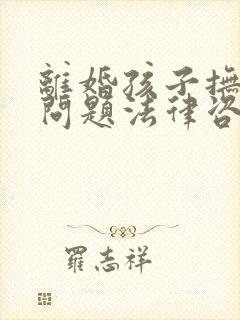 離婚孩子撫
問題法律咨
羅志祥